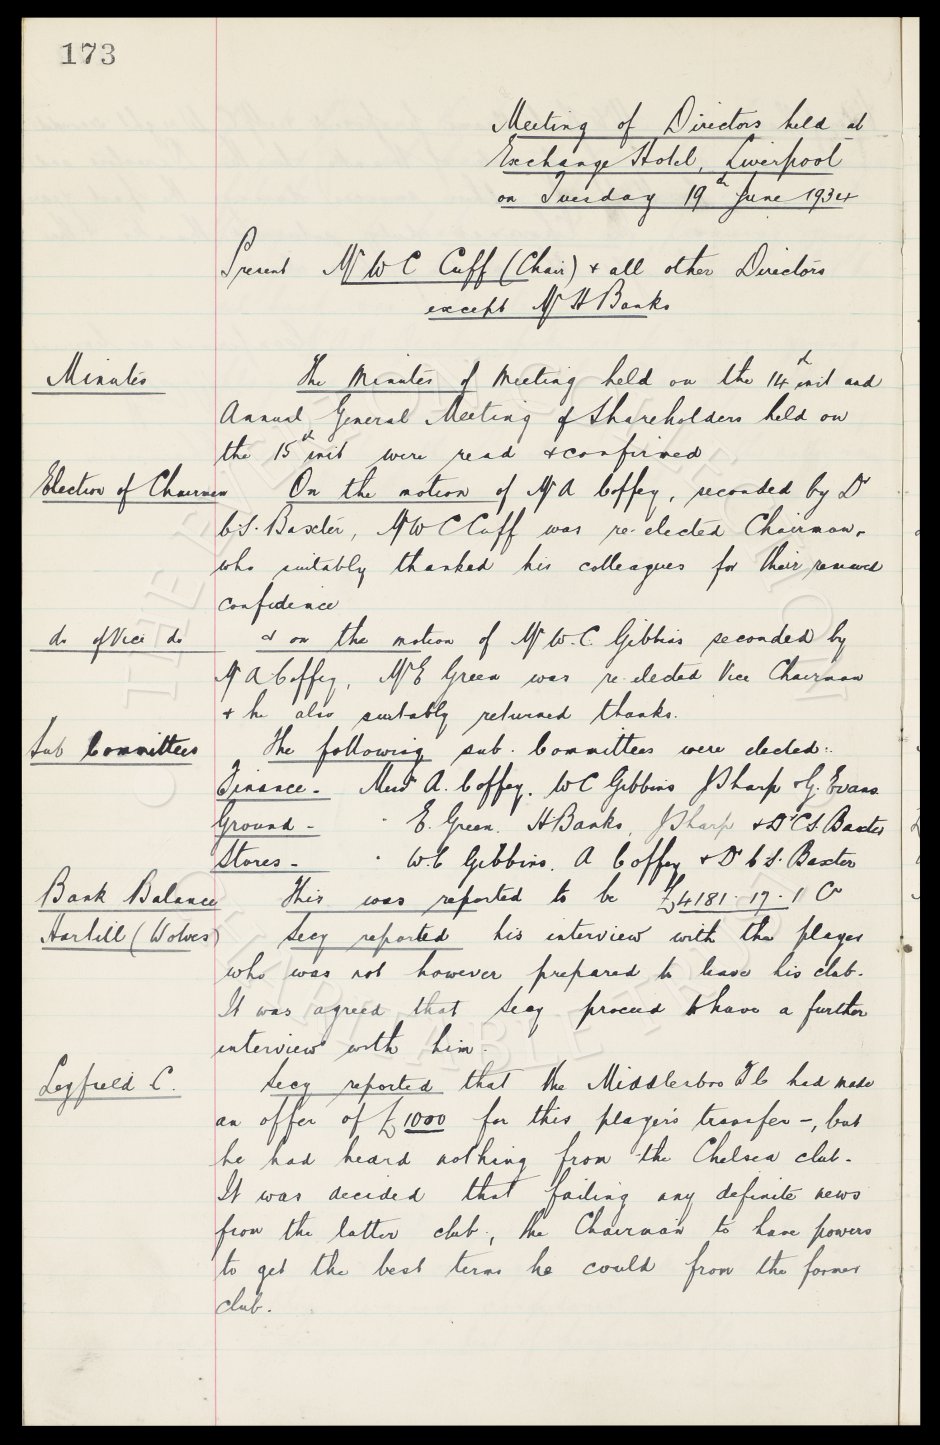 173
Meeting of Directors held at
Exchange Hotel, Liverpool
on Tuesday 19th June 1934
Present Mr W C Cuff (Chair) & all other Directors
except Mr H Banks
Minutes The Minutes of Meeting held on the 14th inst and
Annual General Meeting of Shareholders held on
the 15th inst were read & confirmed
Election of Chairman On the motion of Mr A Coffey, seconded by Dr
C.S. Baxter, Mr W C Cuff was re-elected Chairman,
who suitably thanked his colleagues for their renewed
confidence
do of Vice do & on the motion of Mr W.C. Gibbins seconded by
Mr A Coffey, Mr E Green was re-elected Vice Chairman
& he also suitably returned thanks.
Sub Committees The following sub-Committees were elected:
Finance - Messrs A. Coffey, W C Gibbins J Sharp & G. Evans
Ground - " E. Green, H Banks, J Sharp & Dr C S. Baxter
Stores - " W.C Gibbins, A Coffey & Dr C S. Baxter
Bank Balance This was reported to be £4181-17-1 Cr
Hartill (Wolves) Secy reported his interview with the player
who was not however prepared to leave his club.
It was agreed that Secy proceed to have a further
interview with him.
Leyfield C. Secy reported that the Middlesbro F C had made
an offer of £1000 for this player's transfer -, but
he had heard nothing from the Chelsea club.
It was decided that failing any definite news
from the latter club, the Chairman to have powers
to get the best terms he could from the former
club.
© THE EVERTON COLLECTION CHARITABLE TRUST